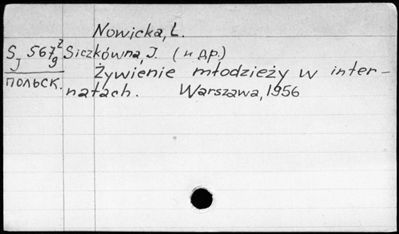 Nowicka, L.
S J 567 2/9 Siczkówna, J. (и др.)
польск. Żywienie młodzieży w inter-
natach. Warszawa, 1956